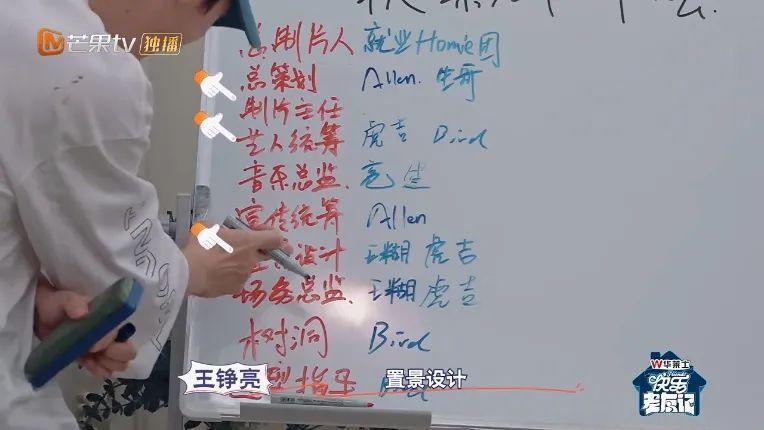 芒果tv 独播
总制片人 就业Homie团
总策划 Allen. 生哥
制片主任
艺人统筹 虎吉 Bird
音乐总监. 亮 生
宣传统筹 Allen
设计 王糊 虎吉
场务总监. 王糊 虎吉
树洞 Bird
型指导
王铮亮 置景设计
W华莱士
快乐
老友记